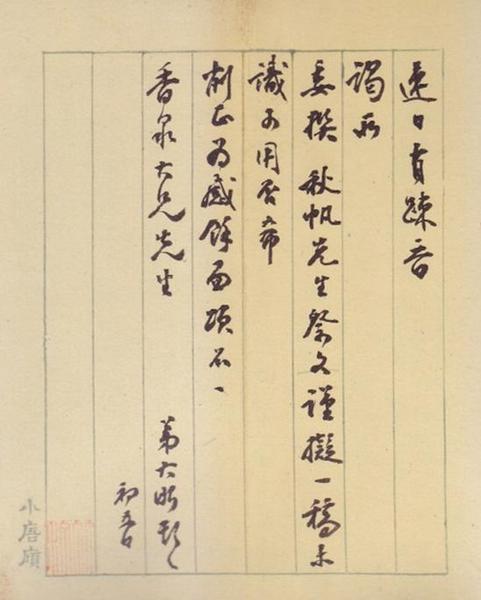 連日有踈音
謁所
委撰 秋帆先生祭文謹擬一稿未
識可用否希
削正為感餘面頌不一、
香泉大兄先生
弟大昕頓
初五日